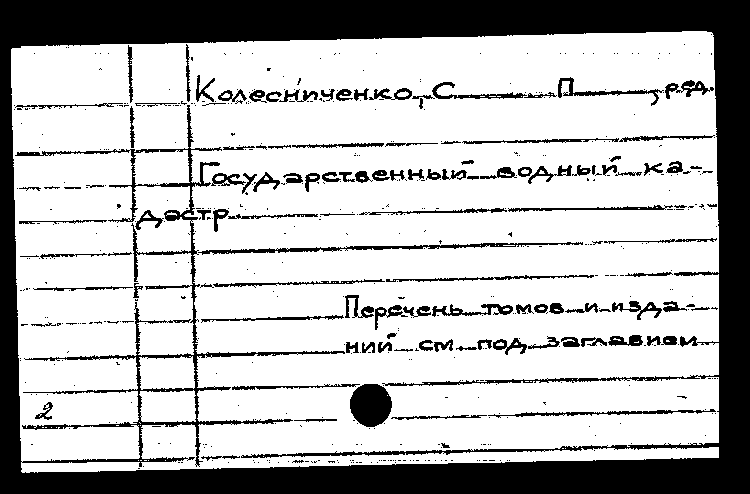 Колесниченко, С П , ред.
Государственный водный ка-
дастр
Перечень томов и изда-
ний см под заглавием
2